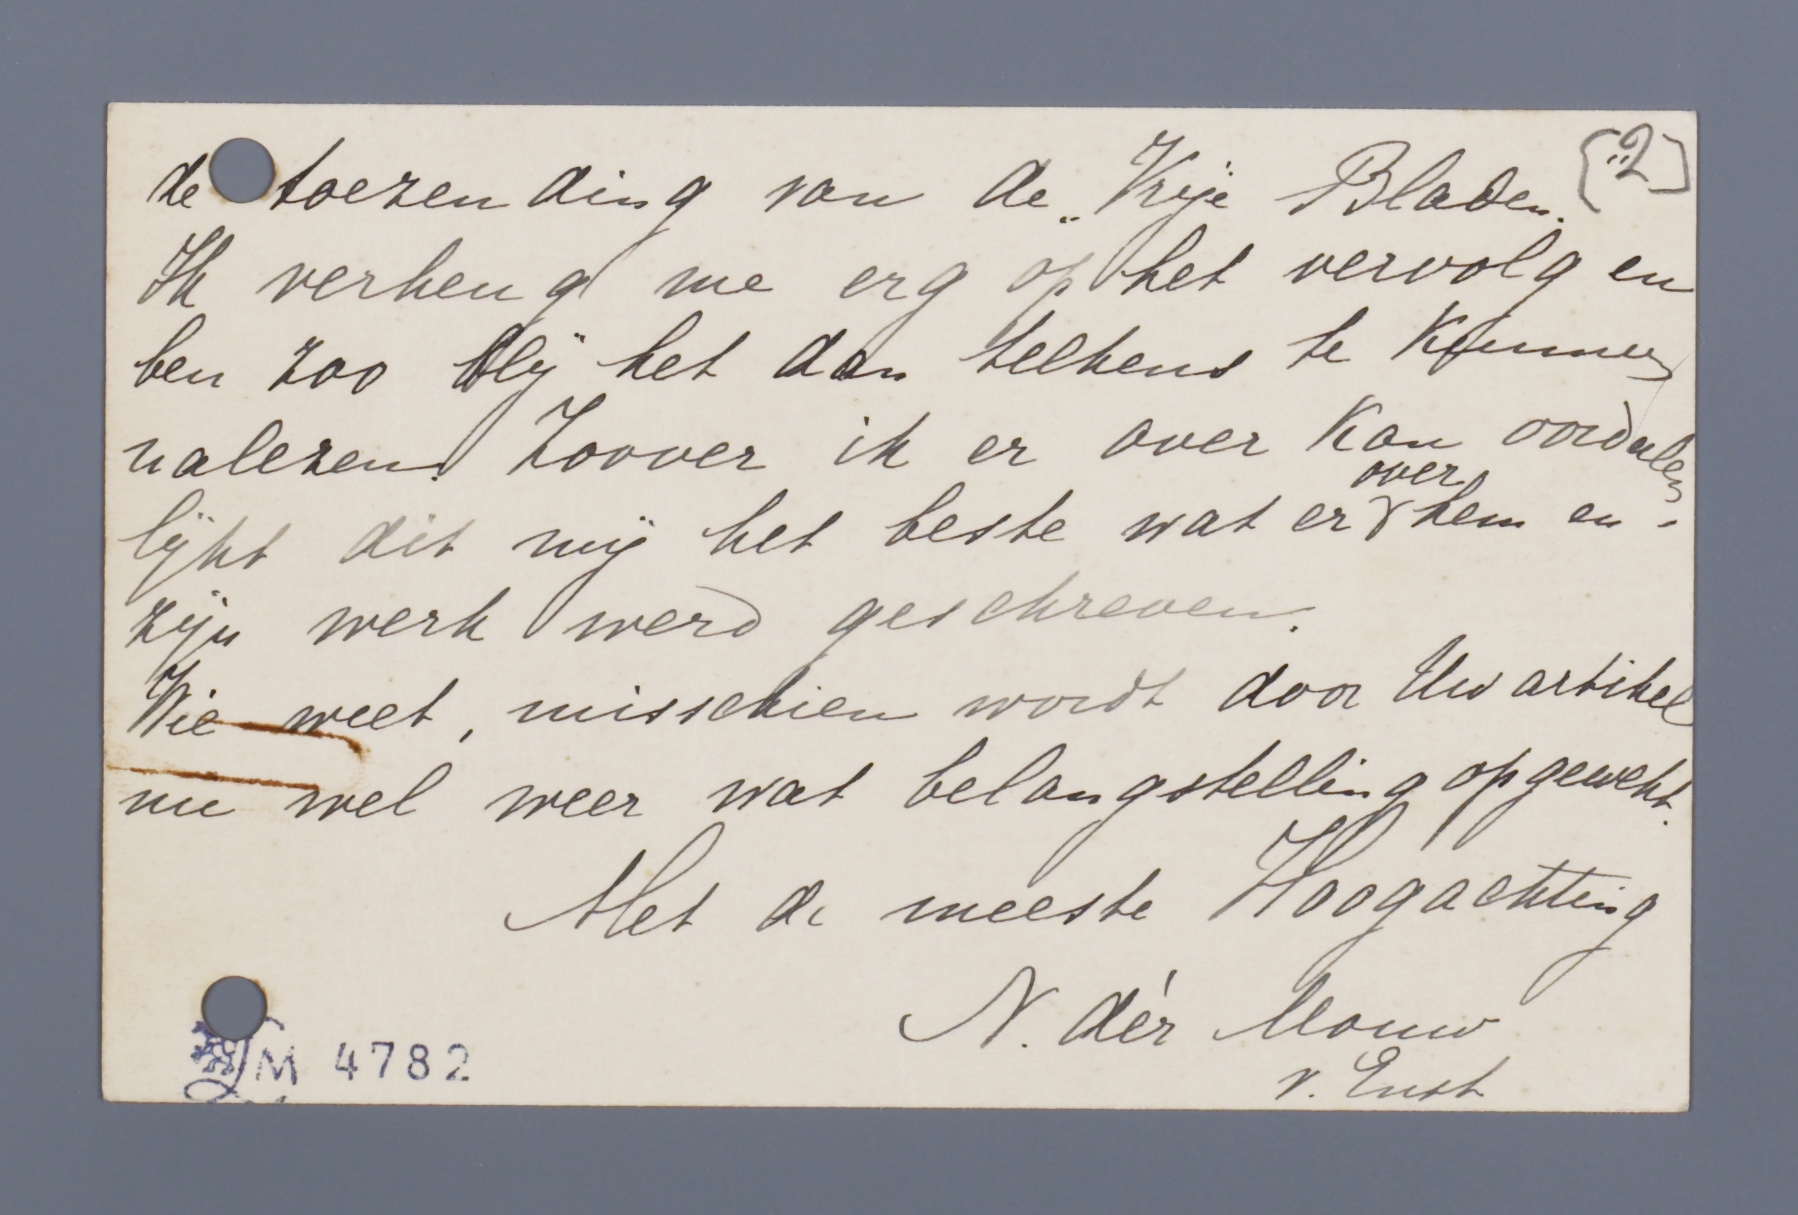 de toezending van de „Vrije Bladen."
[2]
Ik verheug me erg op het vervolg en
ben zoo blij het dan telkens te kunnen
nalezen. Zoover ik er over kan oordeelen
lijkt dit mij het beste wat er over hem en
zijn werk werd geschreven.
Wie weet, misschien wordt door Uw artikel
nu wel weer wat belangstelling opgewekt.
Met de meeste Hoogachting
N. dèr Mouw
v. Enst
M 4782